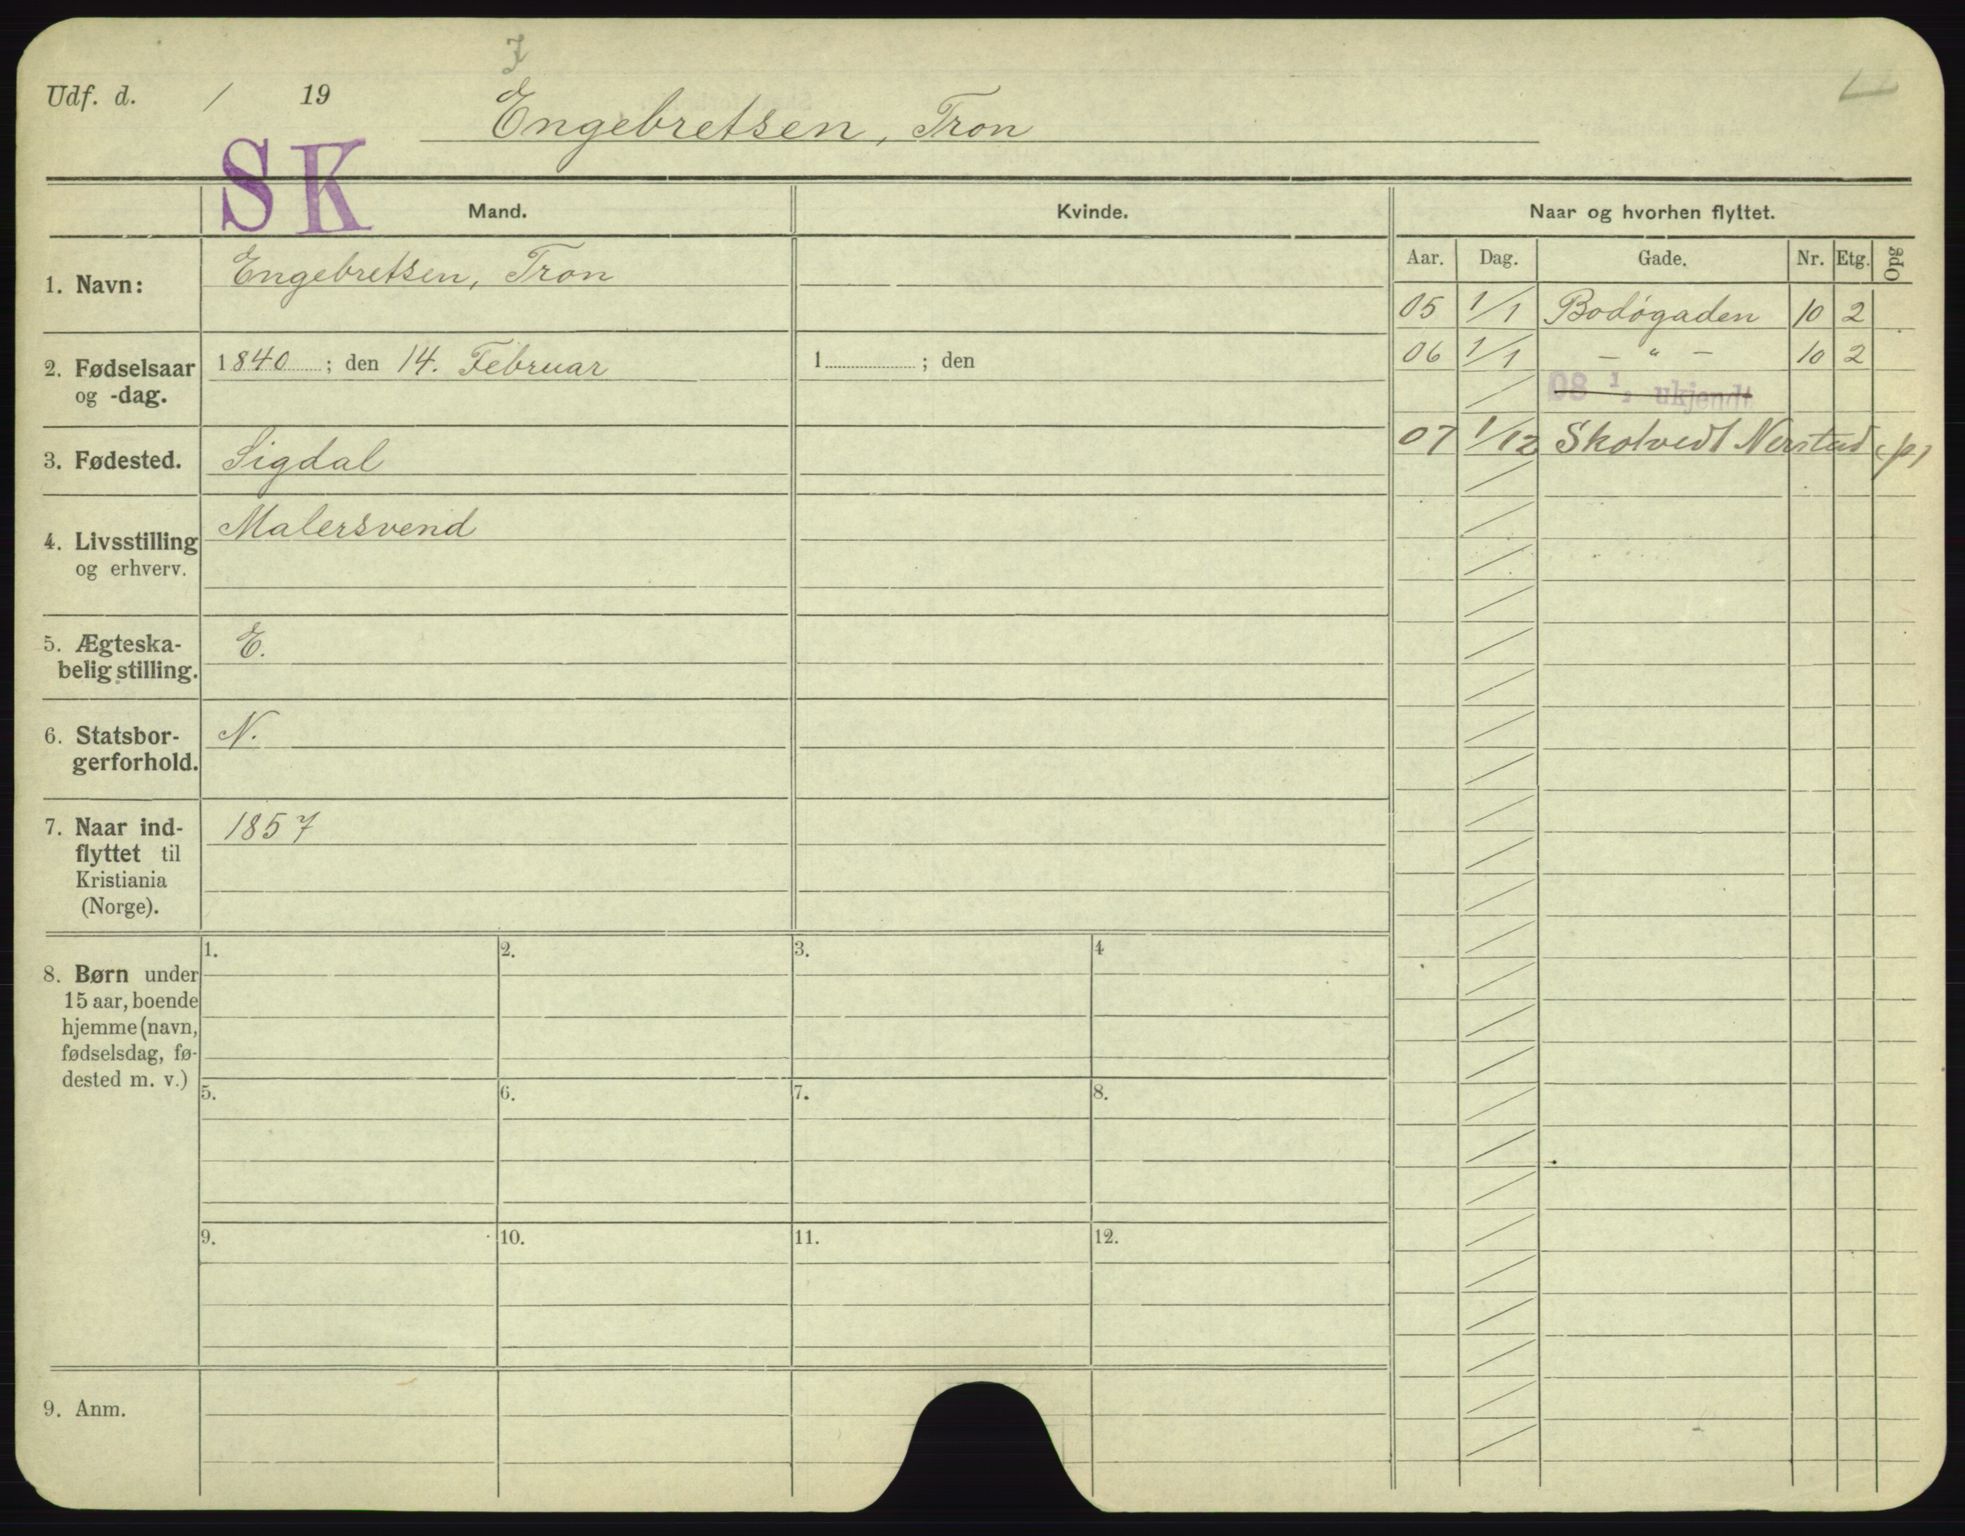 7
Udf. d. / 19
Engebretsen, Tron
SK
Mand. Kvinde. Naar og hvorhen flyttet.
Aar. Dag. Gade. Nr. Etg. Opg
1. Navn: Engebretsen, Tron
05 1/1 Bodøgaden 10 2
06 1/1 — " — 10 2
2. Fødselsaar og -dag. 1840 ; den 14. Februar 1 ; den
08 1/2 ukjendt
07 1/12 Skotvedt Nerstad (p)
3. Fødested. Sigdal
4. Livsstilling og erhverv. Malersvend
5. Ægteska-
belig stilling. E.
6. Statsbor-
gerforhold. N.
7. Naar ind-
flyttet til
Kristiania
(Norge). 1857
8. Børn under
15 aar, boende
hjemme (navn,
fødselsdag, fø-
dested m. v.)
1. 2. 3. 4
5. 6. 7. 8.
9. 10. 11. 12.
9. Anm.